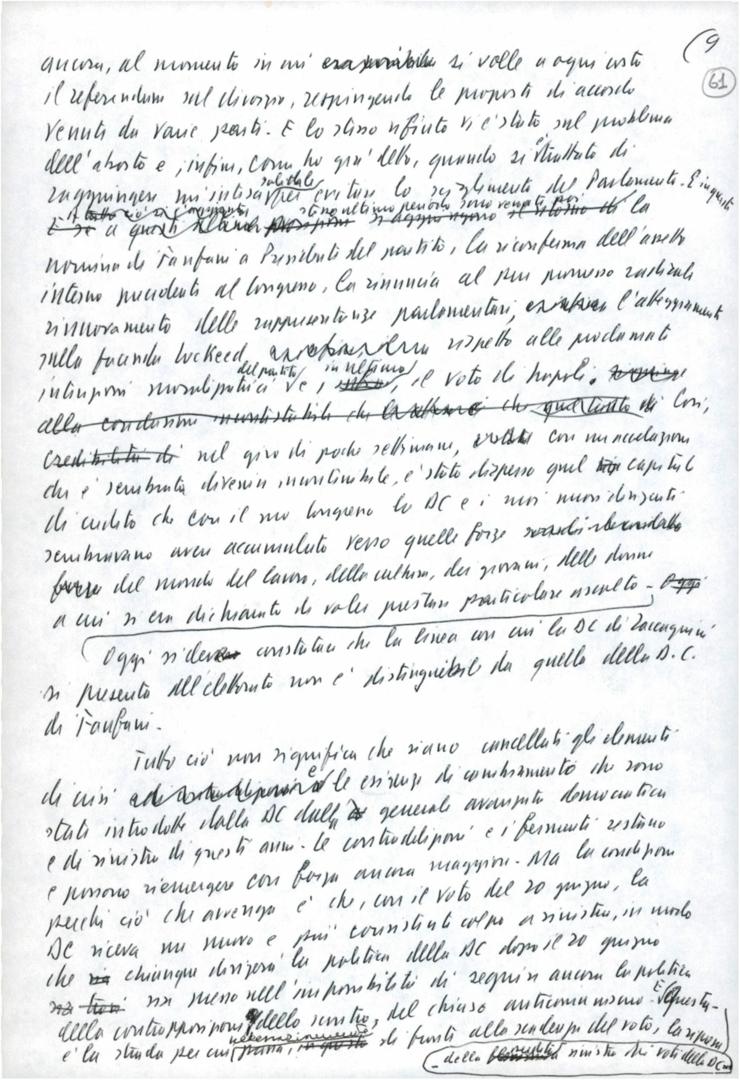 9
61
ancora, al momento in cui si volle a ogni costo
il referendum sul divorzio, respingendo le proposte di accordo
venute da varie parti. E lo stesso rifiuto vi è stato sul problema
dell'aborto e, infine, come ho già detto, quando si è trattato di
raggiungere un'intesa solidale per evitare lo scioglimento del Parlamento. E in questo
stesso ultimo periodo sono venute poi la
nomina di Fanfani a Presidente del partito, la riconferma dell'assetto
interno precedente al Congresso, la rinuncia al pur promesso radicale
rinnovamento delle rappresentanze parlamentari, l'atteggiamento
sulla faccenda Lockeed, rispetto alle proclamate
intenzioni moralizzatrici del partito e, in ultimo, il voto di Napoli.
alla conclusione che Così,
credibilità di nel giro di poche settimane, con un'accelerazione
che è sembrata divenire inarrestabile, è stato disperso quel capitale
di credito che con il suo Congresso la DC e i suoi nuovi dirigenti
sembravano aver accumulato verso quelle forze
del mondo del lavoro, della cultura, dei giovani, delle donne
a cui si era dichiarato di voler prestare particolare ascolto - Oggi
Oggi si deve constatare che la linea con cui la DC di Zaccagnini
si presenta all'elettorato non è distinguibile da quella della D.C.
di Fanfani.
Tutto ciò non significa che siano cancellati gli elementi
di crisi e le esigenze di cambiamento che sono
state introdotte dalla DC dalla generale avanzata democratica
e di sinistra di questi anni. Le contraddizioni e i fermenti restano
e possono riemergere con forza ancora maggiore. Ma la condizione
perché ciò che avvenga è che, con il voto del 20 giugno, la
DC riceva un nuovo e più consistente colpo a sinistra, in modo
che chiunque dirigerà la politica della DC dopo il 20 giugno
sia messo nell'impossibilità di seguire ancora la politica
della contrapposizione, dello scontro, del chiuso anticomunismo. E questa
è la strada per cui passa, di fronte alla scadenza del voto, la
della sinistra dei voti della DC